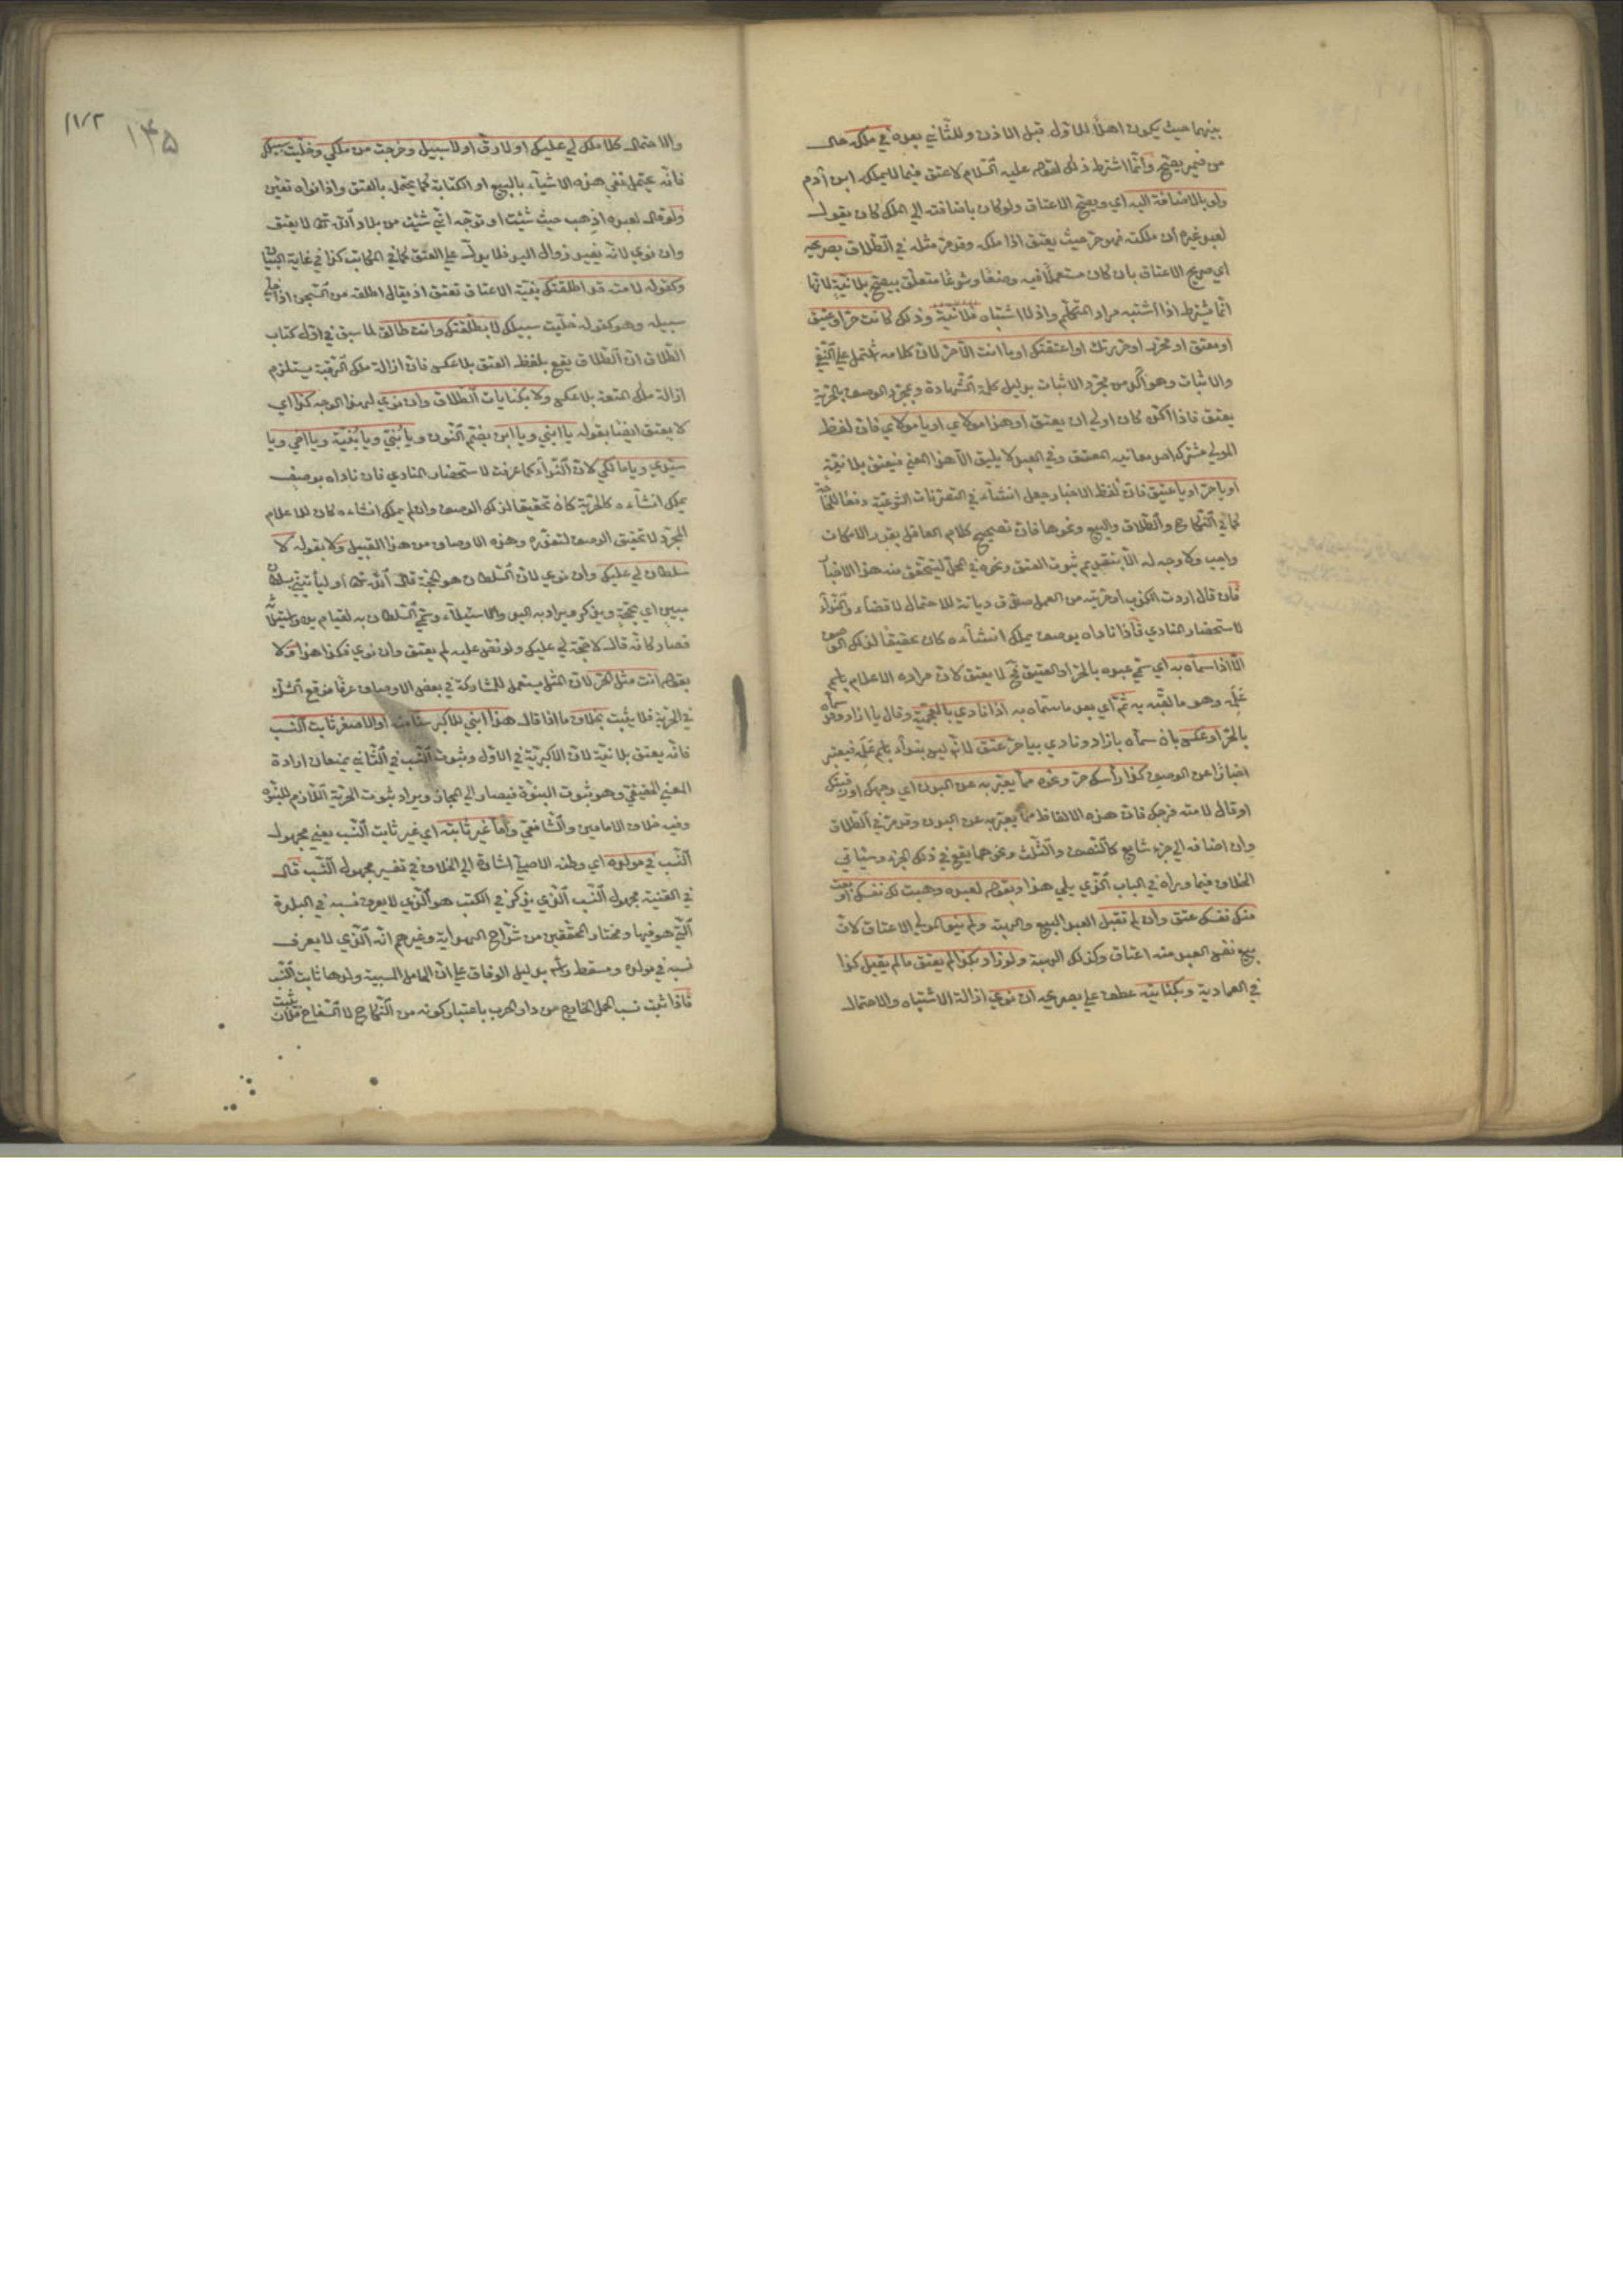 بينهما حيث يكون اهلًا للاول قبل الاذن وللثاني بعده في ملكه حال
من فيه يصح وانما اشترط ذلك لقوله عليه السلام لا عتق فيما لا يملكه ابن آدم
ولو بالاضافة اليه اي ويصح الاعتاق ولو كان باضافته الى الملك كان يقول
لعبد غيره ان ملكته فهو حر حيث يعتق اذا ملكه وقد مر مثله في الطلاق بصريحه
اي صريح الاعتاق بان كان مستعملًا فيه وضعًا وشرعًا متعلق بيصح بلا نية لانها
انما يشترط اذا اشتبه مراد المتكلم واذ لا اشتباه فلا نية وذلك كانت حر او عتيق
او معتق او محرر او حررتك او اعتقتك او ما انت الا حر لان كلامه مشتمل على النفي
والاثبات وهو آكد من مجرد الاثبات بدليل كلمة الشهادة وبمجرد الوصف بالحرية
يعتق فاذا اكده كان اولى ان يعتق او هذا مولاي او يا مولاي فان لفظ
المولى مشترك احد معانيه المعتق وفي العبد لا يليق الا هذا المعنى فيعتق بلا نية
او يا حر او يا عتيق فان لفظ الاخبار جعل انشاء في التصرفات الشرعية دفعًا للحاجة
كما في النكاح والطلاق والبيع ونحوها فان تصحيح كلام العاقل بقدر الامكان
واجب ولا وجه له الا بتقديم ثبوت العتق ونحوه في المحل ليتحقق منه هذا الاخبار
فان قال اردت الكذب او حريته من العمل صدق ديانة للاحتمال لا قضاء والنداء
لاستحضار المنادي فاذا ناداه بوصف يملك انشاءه كان تحقيقًا لذلك الوصف
الا اذا سماه به اي سمي عبده بالحر او العتيق لا يعتق لان مراده الاعلام باسم
علمه وهو ما لقبه به ثم اي بعد ما سماه به اذا نادى بالعجمية وقال يا ازاد وقد سماه
بالحر او عكس بان سماه بازاد ونادى بيا حر عتق لانه ليس بنداء باسم علمه فيعتبر
اخبارًا عن الوصف كذا رأسك حر ونحوه مما يعبر به عن البدن اي وجهك او رقبتك
او قال لامته فرجك فان هذه الالفاظ مما يعبر به عن البدن وقد مر في الطلاق
وان اضافه الى جزء شايع كالنصف والثلث ونحوهما يقع في ذلك الجزء وسيأتي
الخلاف فيما وراه في الباب الذي يلي هذا وبقوله لعبده وهبت لك نفسك او بعت
منك نفسك عتق وان لم تقبل العبد البيع والهبة ولم ينو المولى الاعتاق لان
بيع نفس العبد منه اعتاق وكذلك الهبة ولو زاد بكذا لم يعتق ما لم يقبل كذا
في العمادية وبكنايته عطف على بصريحه ان نوى ازالة الاشتباه والاحتمال
١١٢ ١٣٥
والاحتمال كلا ملك لي عليك او لا رق او لا سبيل وخرجت من ملكي وخليت سبيلك
فانه يحتمل نفي هذه الاشياء بالبيع او الكتابة كما يحتمل بالعتق واذا نواه تعين
ولو قال لعبده اذهب حيث شئت او توجه اني شئت من بلاد الله تعالى لا يعتق
وان نوى لانه يفيد زوال اليد فلا يدل على العتق كما في المكاتب كذا في غاية البيان
وكقوله لامته قد اطلقتك بنية الاعتاق تعتق اذ يقال اطلقه من السجن اذا خلى
سبيله وهو كقوله خليت سبيلك لا بطلقتك وانت طالق لما سبق في اول كتاب
الطلاق ان الطلاق يقع بلفظ العتق بلا عكس فان ازالة ملك الرقبة يستلزم
ازالة ملك المتعة بلا عكس ولا بكنايات الطلاق وان نوى لهذا الوجه كذا اي
لا يعتق ايضًا بقوله يا ابني ويا ابن بضم النون ويا بنتي ويا بنية ويا اخي ويا
سيدي ويا مالكي لان النداء كما عرفت لاستحضار المنادي فان ناداه بوصف
يملك انشاءه كالحرية كان تحقيقًا لذلك الوصف وان لم يملك انشاءه كان للاعلام
المجرد لا تحقيق الوصف لتعذره وهذه الاوصاف من هذا القبيل ولا بقوله لا
سلطان لي عليك وان نوى لان السلطان هو الحجة قال الله تعالى او ليأتيني بسلطان
مبين اي بحجة ويذكر ويراد به اليد والاستيلاء وسمي السلطان به لقيام يده واستيلائه
فصار كانه قال لا حجة لي عليك ولو نص عليه لم يعتق وان نوى فكذا هذا ولا
بقوله انت مثل الحر لان المثل يستعمل للمشاركة في بعض الاوصاف عرفًا فوقع الشك
في الحرية فلا يثبت بخلاف ما اذا قال هذا ابني للاكبر سنًا منه او للاصغر ثابت النسب
فانه يعتق بلا نية لان الاكبرية في الاول وثبوت النسب في الثاني يمنعان ارادة
المعنى الحقيقي وهو ثبوت البنوة فيصار الى المجاز ويراد ثبوت الحرية اللازم للبنوة
وفيه خلاف الامامين والشافعي واما غير ثابته اي غير ثابت النسب يعني مجهول
النسب في مولده اي وطنه الاصلي اشارة الى الخلاف في تفسير مجهول النسب قال
في القنية مجهول النسب الذي يذكر في الكتب هو الذي لا يعرف نسبه في البلدة
التي هو فيها ومختار المحققين من شراح الهداية وغيرهم انه الذي لا يعرف
نسبه في مولده ومسقط رأسه بدليل الوفاق على ان الحامل المسبية ولدها ثابت النسب
فاذا ثبت نسب الحمل الخارج من دار الحرب باعتبار كونه من النكاح لا السفاح فلان يثبت